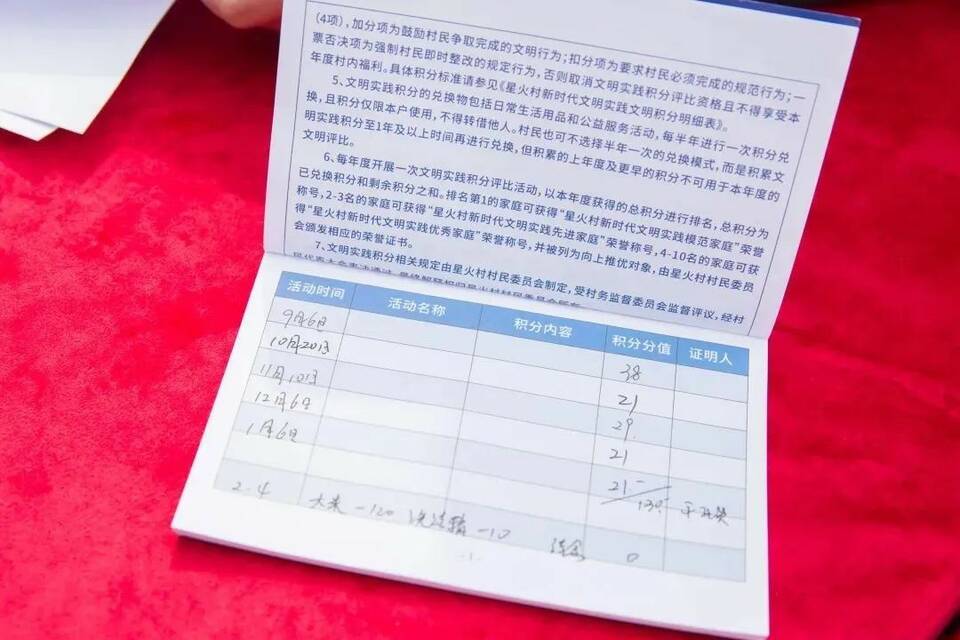 (4项)，加分项为鼓励村民争取完成的文明行为；扣分项为要求村民必须完成的规范行为；一
票否决项为强制村民即时整改的规定行为，否则取消文明实践积分评比资格且不得享受本
年度村内福利。具体积分标准请参见《星火村新时代文明实践文明积分明细表》。
5、文明实践积分的兑换物包括日常生活用品和公益服务活动，每半年进行一次积分兑
换，且积分仅限本户使用，不得转借他人。村民也可不选择半年一次的兑换模式，而是积累文
明实践积分至1年及以上时间再进行兑换，但积累的上年度及更早的积分不可用于本年度的
文明评比。
6、每年度开展一次文明实践积分评比活动，以本年度获得的总积分进行排名，总积分为
已兑换积分和剩余积分之和。排名第1的家庭可获得“星火村新时代文明实践模范家庭”荣誉
称号，2-3名的家庭可获得“星火村新时代文明实践先进家庭”荣誉称号，4-10名的家庭可获
得“星火村新时代文明实践优秀家庭”荣誉称号，并被列为向上推优对象，由星火村村民委员
会颁发相应的荣誉证书。
7、文明实践积分相关规定由星火村村民委员会制定，受村务监督委员会监督评议，经村
民代表大会表决通过，最终解释权归星火村村民委员会所有
活动时间 活动名称 积分内容 积分分值 证明人
9月6日 38
10月20日 21
11月10日 29
12月6日 21
1月6日 21
130
2.4 大米 -120 洗洁精 -10 结余 0